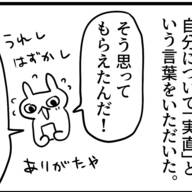 自分について「実直」と
いう言葉をいただいた。
そう思って
もらえたんだ！
うれし
はずかし
ありがたや